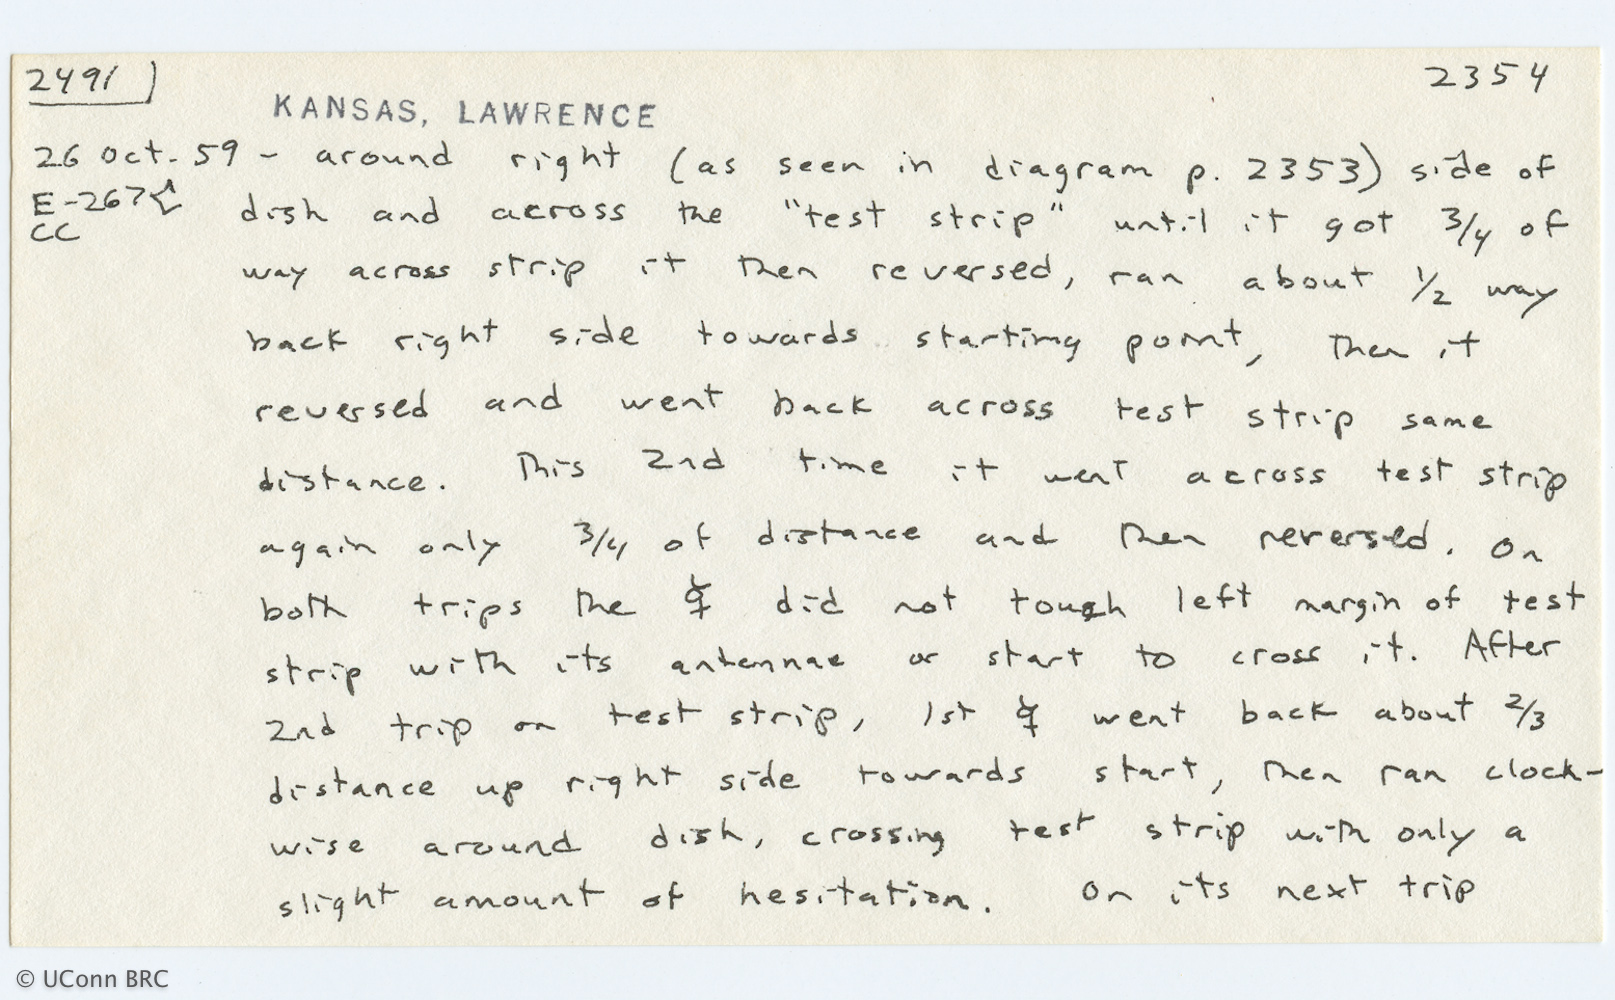 2491
2354
KANSAS, LAWRENCE
26 Oct. 59 - around right (as seen in diagram p. 2353) side of
E-267
CC
dish and across the "test strip" until it got 3/4 of
way across strip it then reversed, ran about 1/2 way
back right side towards starting point, then it
reversed and went back across test strip same
distance. This 2nd time it went across test strip
again only 3/4 of distance and then reversed. On
both trips the ☿ did not touch left margin of test
strip with its antennae or start to cross it. After
2nd trip on test strip, 1st ☿ went back about 2/3
distance up right side towards start, then ran clock-
wise around dish, crossing test strip with only a
slight amount of hesitation. On its next trip
© UConn BRC